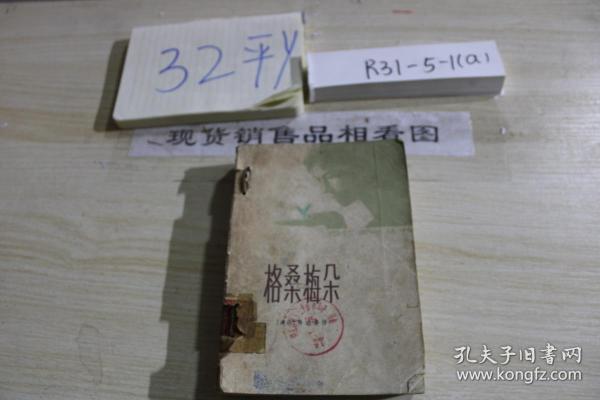 32平y
R31-5-1(a)
现货销售品相看图
格桑梅朵
孔夫子旧书网
www.kongfz.com